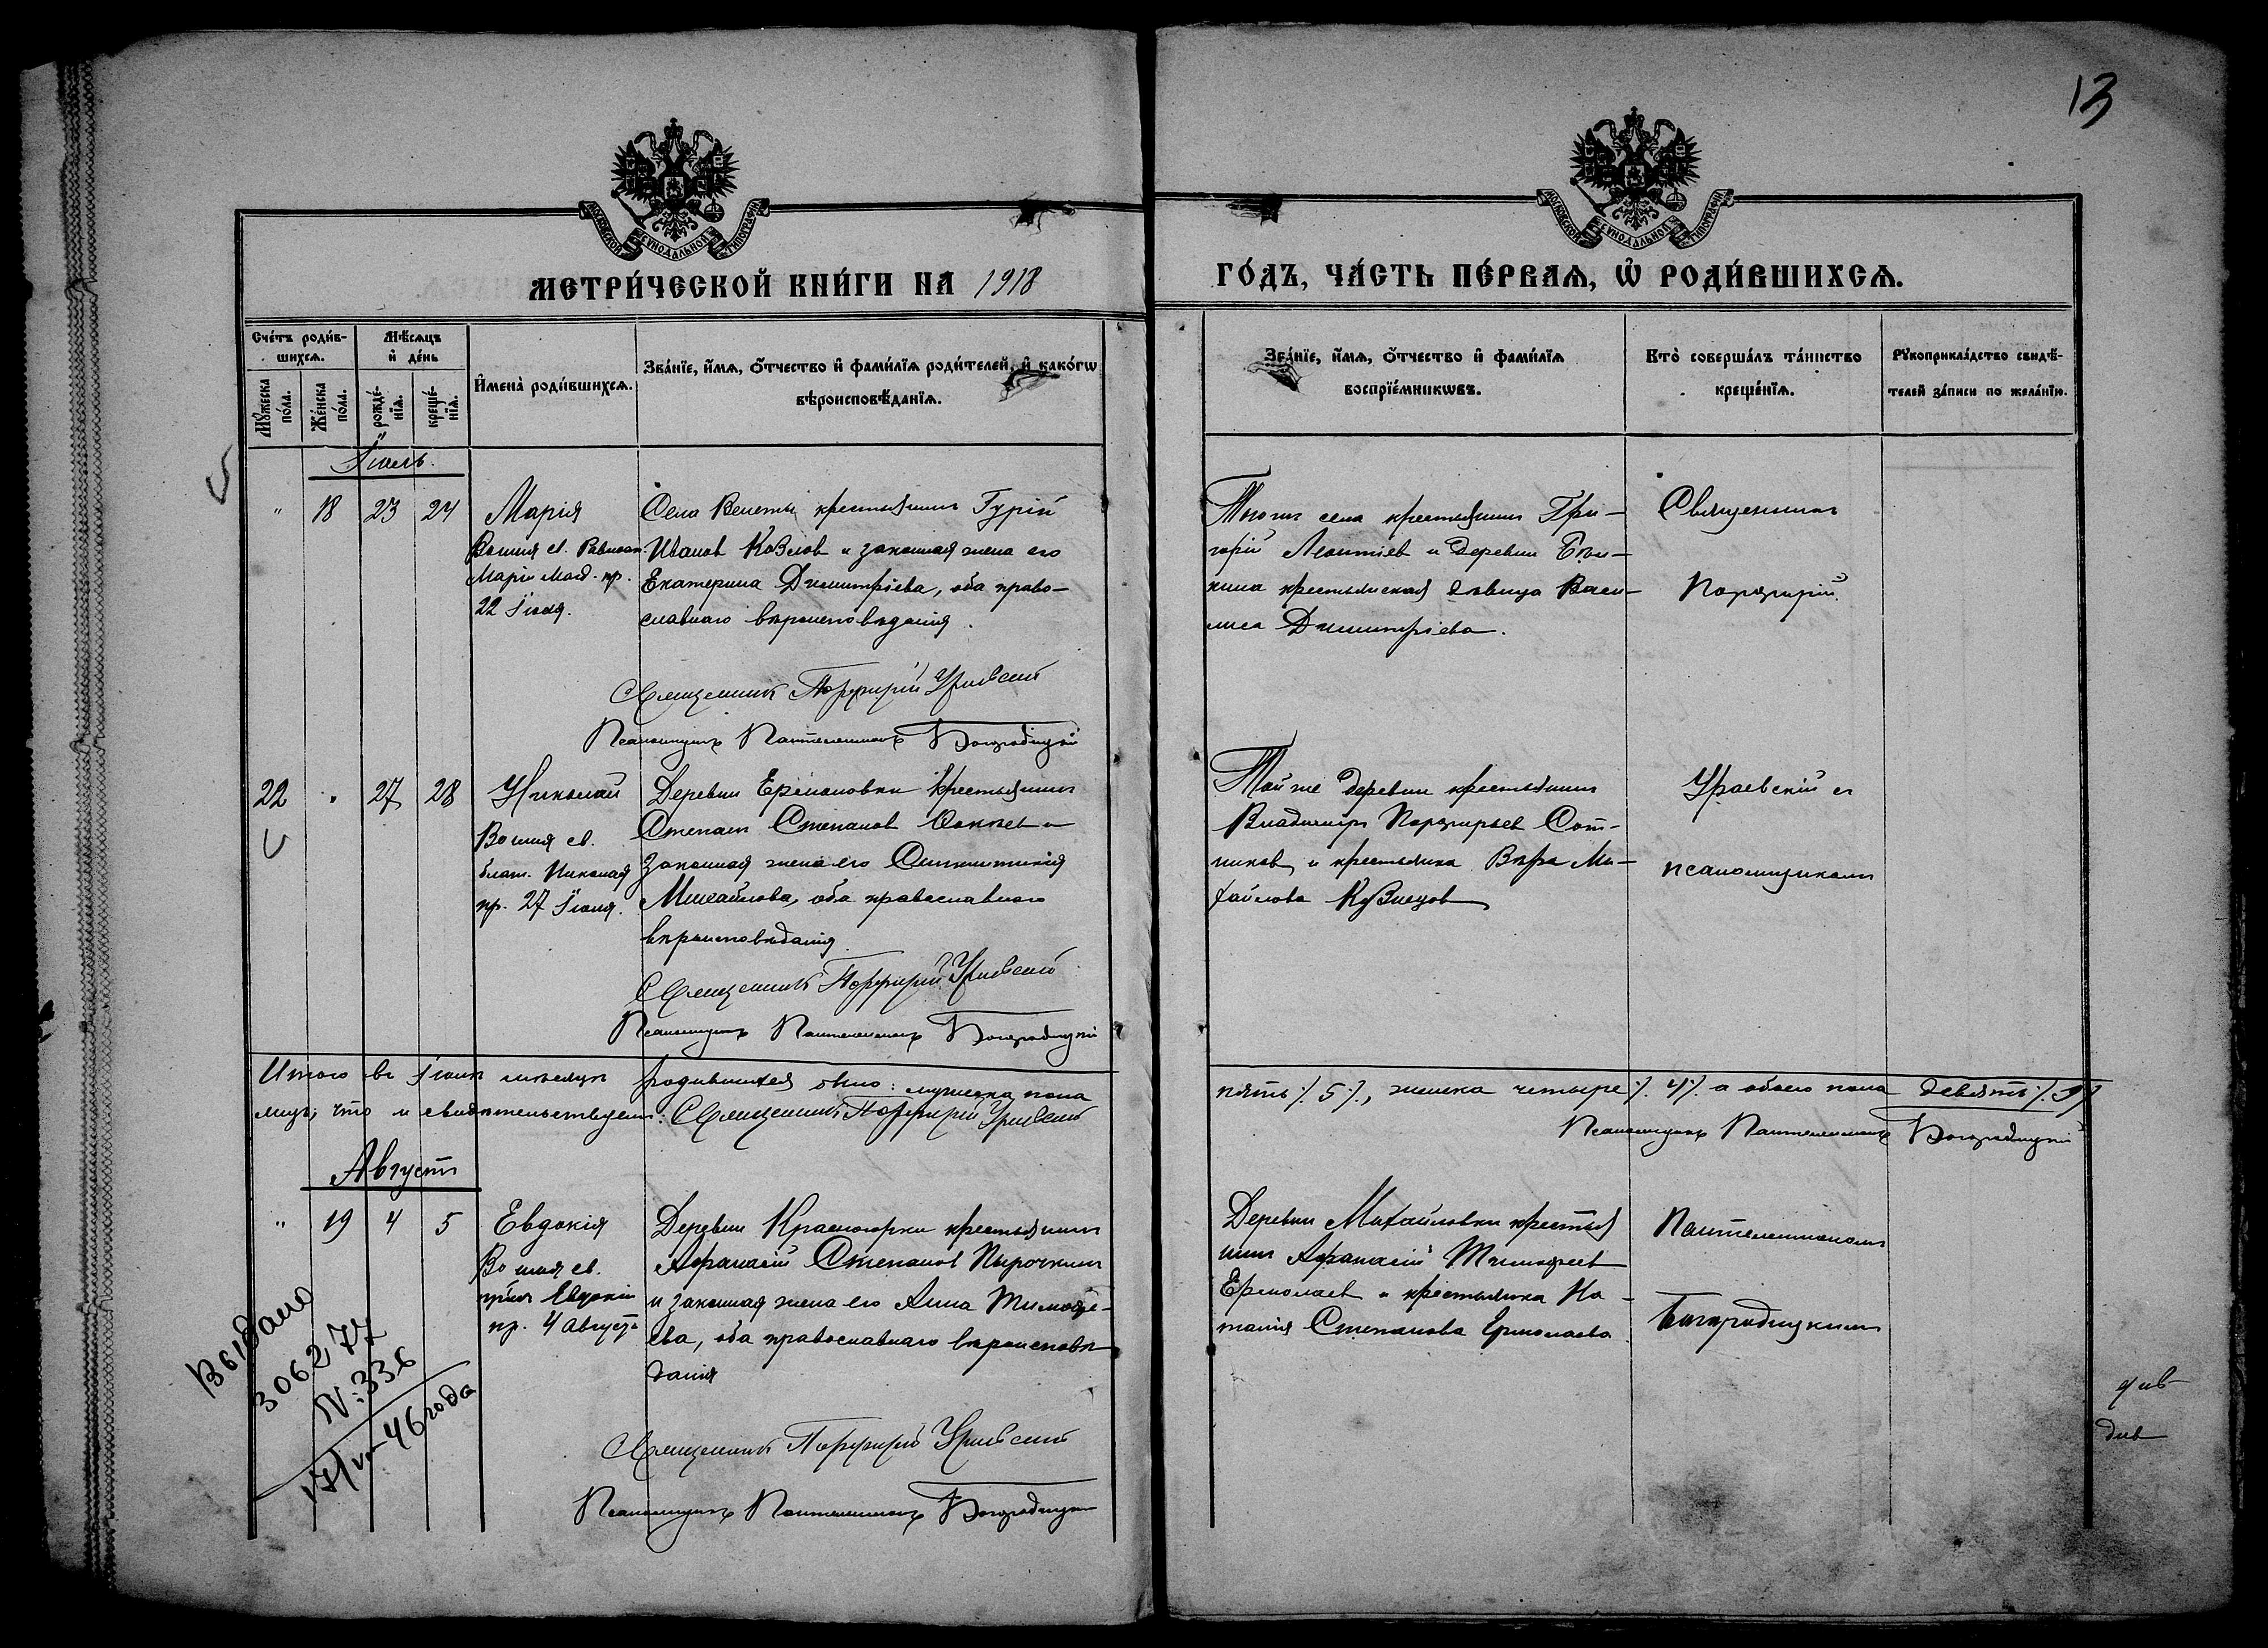 13
МОСКОВСКОЙ СѴНОДАЛЬНОЙ ТИПОГРАФІИ
МОСКОВСКОЙ СѴНОДАЛЬНОЙ ТИПОГРАФІИ
МЕТРИ́ЧЕСКОЙ КНИ́ГИ НА 1918
ГО́ДЪ, ЧА́СТЬ ПЕ́РВАѦ, Ѡ҆ РОДИ́ВШИХСѦ.
Сче́тъ роди́в-
шихсѧ.
Мѣ́сѧцъ
и҆ де́нь
Мꙋ́жеска
по́ла.
Же́нска
по́ла.
рожде́-
нїѧ.
креще́-
нїѧ.
И҆мена̀ роди́вшихсѧ.
Зва́нїе, и҆́мѧ, ѻ҆́тчество и҆ фами́лїѧ роди́телей, и҆ како́гѡ
вѣроисповѣ́данїѧ.
Зва́нїе, и҆́мѧ, ѻ҆́тчество и҆ фами́лїѧ
воспрїе́мникѡвъ.
Кто̀ соверша́лъ та́инство
креще́нїѧ.
Рꙋкоприкла́дство свидѣ́-
телей за́писи по жела́нїю.
Іюль.
" 18 23 24 Марія
Во имя св. Равноап.
Маріи Магд. пр.
22 Іюля.
Села Венеты крестьянин Гурій
Иванов Козлов и законная жена его
Екатерина Димитріева, оба право-
славнаго вѣроисповѣданія.
Священник Порфирій Ураевскій
Псаломщикъ Пантелеимонъ Богородицкій
Того ж села крестьянин Гри-
горій Леонтіев и деревни
кина крестьянская дѣвица Васи-
лиса Димитріева.
Священник
Порфирій
22 " 27 28 Николай
Во имя св.
блаж. Николая
пр. 27 Іюля.
Деревни Ермоловки крестьянин
Степан Степанов и
законная жена его Синклитикія
Михайлова, оба православнаго
вѣроисповѣданія.
Священник Порфирій Ураевскій
Псаломщикъ Пантелеимонъ Богородицкій
Той же деревни крестьянин
Владимир Порфирьев Сот-
ников и крестьянка Вѣра Ми-
хайлова Кузнецов
Ураевскій с
псаломщиком
Итого в Іюлѣ мѣсяцѣ родившихся было: мужеска пола
пять /.5/., женска четыре /.4/. а обоего пола девять /.9/.
лицъ; что и свидѣтельствуем: Священник Порфирій Ураевскій
Псаломщикъ Пантелеимонъ Богородицкій
Август
" 19 4 5 Евдокія
Во имя св.
Евдокіи
пр. 4 Августа
Деревни Красногорки крестьянин
Афанасій Степанов Пырочкин
и законная жена его Анна Тимофе-
ева, оба православнаго вѣроисповѣ
данія
Священник Порфирій Ураевскій
Псаломщикъ Пантелеимонъ Богородицкій
Деревни Михайловки крестья
нин Афанасій Тимофеев
Ермолаев и крестьянка На-
талія Степанова Ермолаева
Пантелеимоном
Богородицким
Выдано
306277
N: 336
17/V-46 года